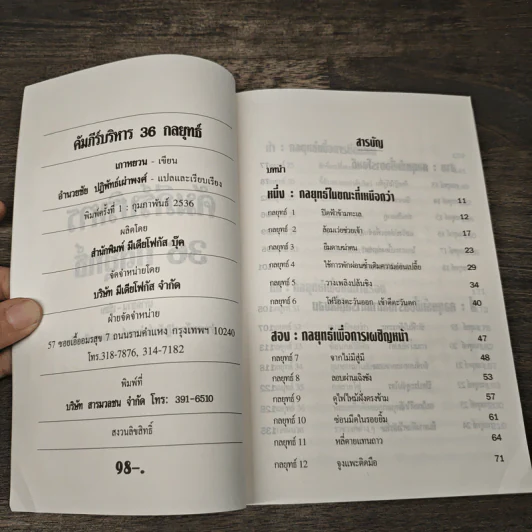 คัมภีร์บริหาร 36 กลยุทธ์
เกาหยวน - เขียน
อำนวยชัย ปฏิพัทธ์เผ่าพงศ์ - แปลและเรียบเรียง
พิมพ์ครั้งที่ 1 : กุมภาพันธ์ 2536
ผลิตโดย
สำนักพิมพ์ มีเดียโฟกัส บุ๊ค
จัดจำหน่ายโดย
บริษัท มีเดียโฟกัส จำกัด
ฝ่ายจัดจำหน่าย
57 ซอยเอื้ออมรสุข 7 ถนนรามคำแหง กรุงเทพฯ 10240
โทร.318-7876, 314-7182
พิมพ์ที่
บริษัท สารมวลชน จำกัด โทร: 391-6510
สงวนลิขสิทธิ์
98-.
สารบัญ
บทนำ
หนึ่ง : กลยุทธ์ในขณะที่เหนือกว่า 11
กลยุทธ์ 1 ปิดฟ้าข้ามทะเล 12
กลยุทธ์ 2 ล้อมเว่ยช่วยเจ้า 17
กลยุทธ์ 3 ยืมดาบฆ่าคน 23
กลยุทธ์ 4 ใช้การพักผ่อนซ้ำเติมความอ่อนเปลี้ย 29
กลยุทธ์ 5 วางเพลิงปล้นชิง 34
กลยุทธ์ 6 ให้ร้องตะวันออก เข้าตีตะวันตก 40
สอง : กลยุทธ์เพื่อการเผชิญหน้า 47
กลยุทธ์ 7 จากไม่มีสู่มี 48
กลยุทธ์ 8 ลอบผ่านเฉินชัง 53
กลยุทธ์ 9 ดูไฟไหม้ฝั่งตรงข้าม 57
กลยุทธ์ 10 ซ่อนมีดในรอยยิ้ม 61
กลยุทธ์ 11 หลี่ตายแทนถาว 64
กลยุทธ์ 12 จูงแพะติดมือ 71